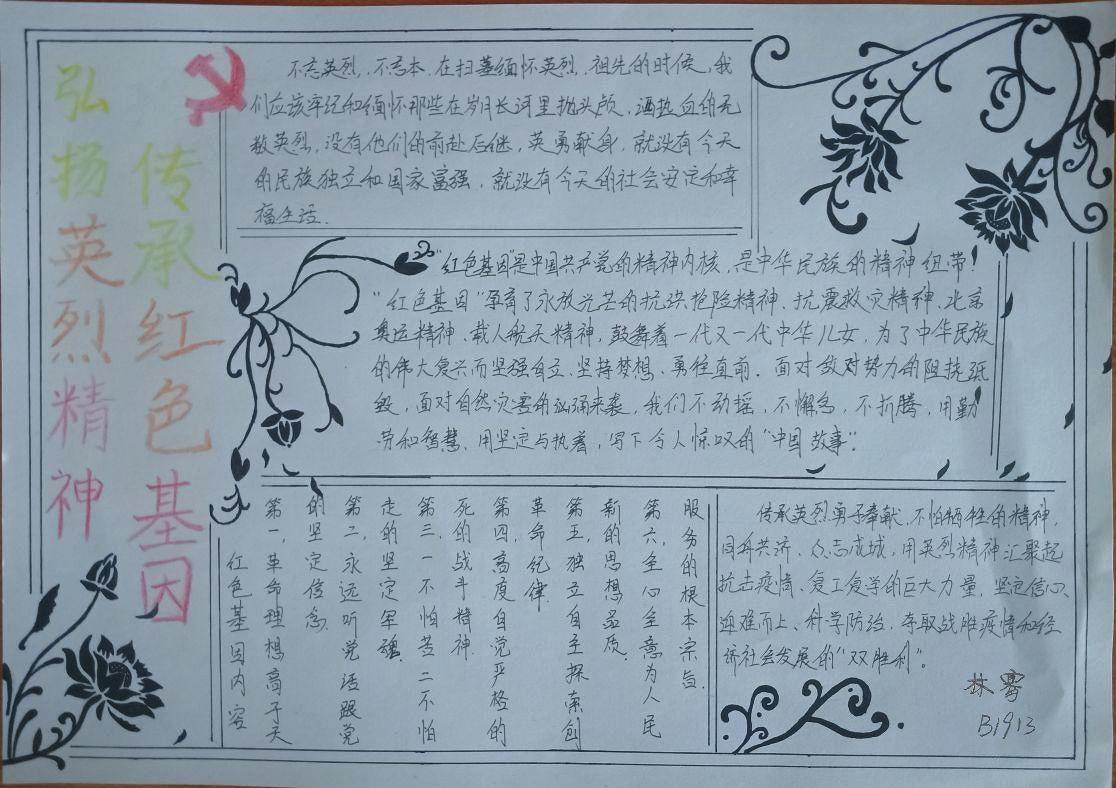 弘扬英烈精神
传承红色基因
不忘英烈，不忘本.在扫墓缅怀英烈，祖先的时候，我
们应该牢记和缅怀那些在岁月长河里抛头颅，洒热血的无
数英烈，没有他们的前赴后继，英勇献身，就没有今天
的民族独立和国家富强，就没有今天的社会安定和幸
福生活.
"红色基因"是中国共产党的精神内核，是中华民族的精神纽带！
"红色基因"孕育了永放光芒的抗洪抢险精神、抗震救灾精神、北京
奥运精神、载人航天精神，鼓舞着一代又一代中华儿女，为了中华民族
的伟大复兴而坚强自立、坚持梦想、勇往直前.面对敌对势力的阻挠诋
毁，面对自然灾害的汹涌来袭，我们不动摇，不懈怠，不折腾，用勤
劳和智慧，用坚定与执着，写下令人惊叹的"中国故事".
红色基因内容
第一，革命理想高于天
的坚定信念.
第二，永远听党话跟党
走的坚定军魂.
第三，一不怕苦二不怕
死的战斗精神.
第四，高度自觉严格的
革命纪律.
第五，独立自主探索创
新的思想品质.
第六，全心全意为人民
服务的根本宗旨.
传承英烈勇于奉献，不怕牺牲的精神，
同舟共济、众志成城，用英烈精神汇聚起
抗击疫情、复工复学的巨大力量，坚定信心、
迎难而上、科学防治，夺取战胜疫情和经
济社会发展的"双胜利".
林
B1913